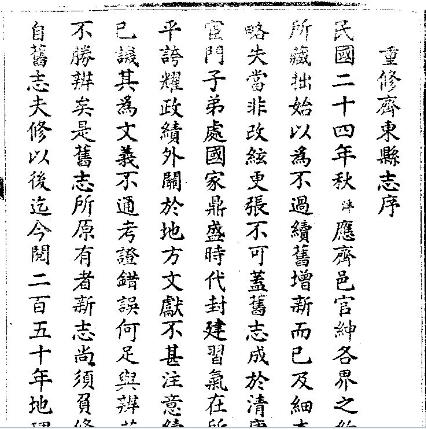 重修齊東縣志序
民國二十四年秋應齊邑官紳各界之
所藏拙始以為不過續舊增新而已及細
略失當非改絃更張不可蓋舊志成於清
宦門子弟處國家鼎盛時代封建習氣在所
平誇耀政績外關於地方文獻不甚注意
已譏其為文義不通考證錯誤何足與辨
不勝辨矣是舊志所原有者新志尚須負
自舊志失修以後迄今閱二百五十年地